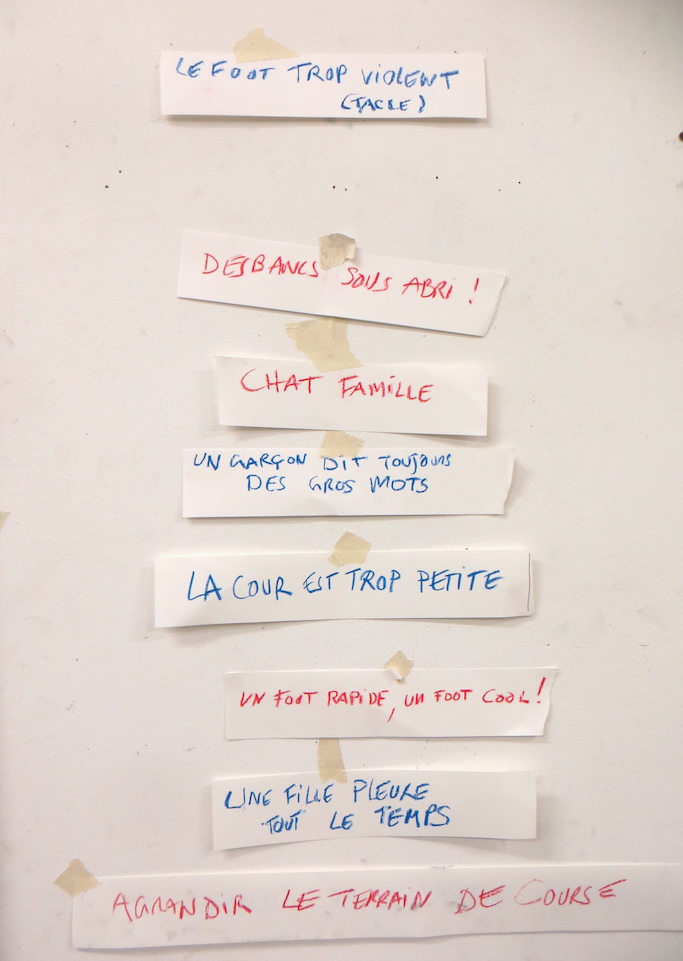 LE FOOT TROP VIOLENT
(TACLE)
DES BANCS SOUS ABRI !
CHAT FAMILLE
UN GARÇON DIT TOUJOURS
DES GROS MOTS
LA COUR EST TROP PETITE
UN FOOT RAPIDE, UN FOOT COOL !
UNE FILLE PLEURE
TOUT LE TEMPS
AGRANDIR LE TERRAIN DE COURSE